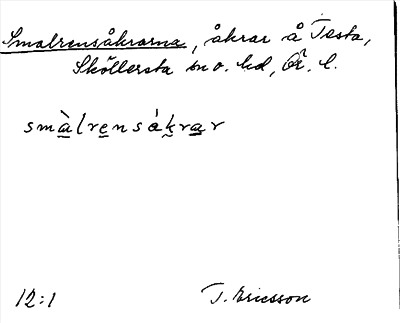 Smalrensåkrarna, åkrar å Testa,
Sköllersta sn o. hd, Ör. l.
smàlrensákrar
12:1 T. Ericsson